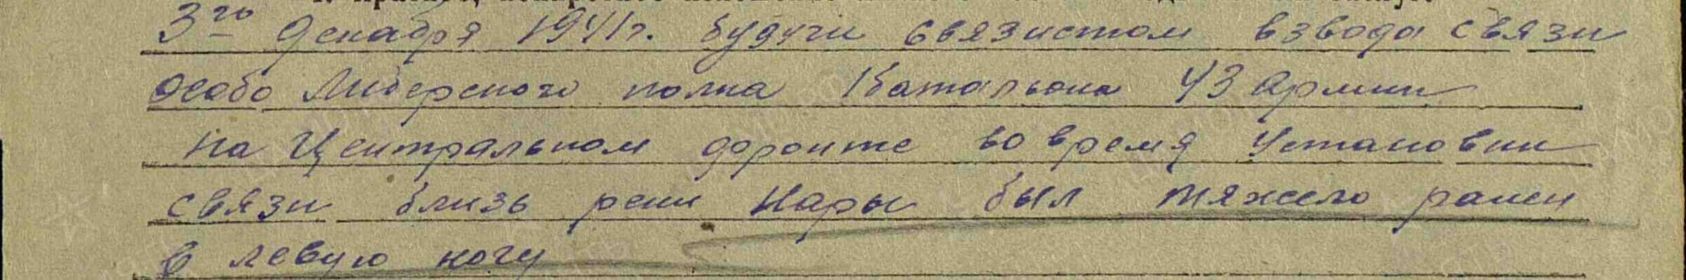 3го декабря 1941г. будучи связистом взвода связи
особо Лидерского полка 1 батальона 43 армии
на Центральном фронте во время установки
связи близь реки Нары был тяжело ранен
в левую ногу